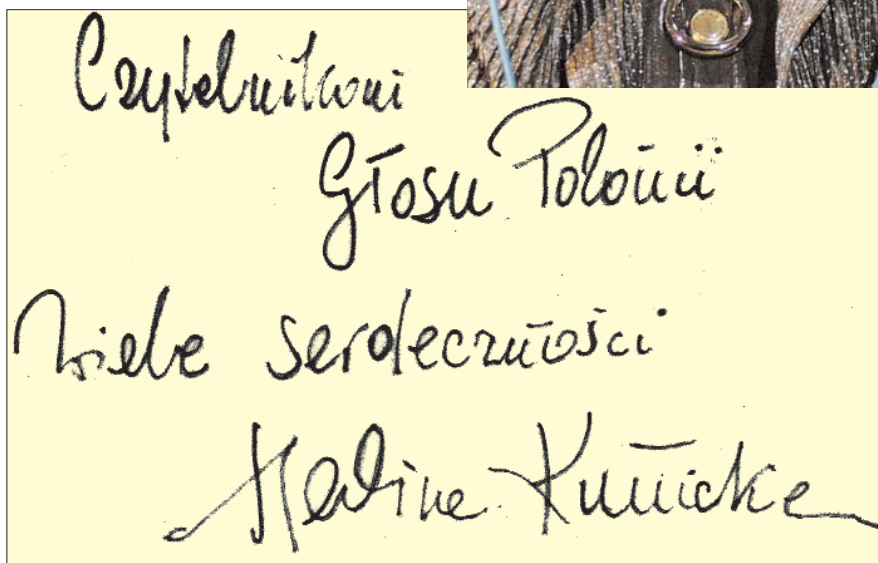 Czytelnikom
Głosu Polonii
Wiele serdeczności
Halina Kunicka